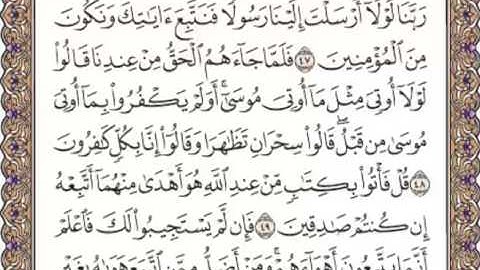 رَبَّنَا لَوْلَآ أَرْسَلْتَ إِلَيْنَا رَسُولًا فَنَتَّبِعَ ءَايَٰتِكَ وَنَكُونَ
مِنَ ٱلْمُؤْمِنِينَ ٤٧ فَلَمَّا جَآءَهُمُ ٱلْحَقُّ مِنْ عِندِنَا قَالُوا۟
لَوْلَآ أُوتِىَ مِثْلَ مَآ أُوتِىَ مُوسَىٰٓ ۚ أَوَلَمْ يَكْفُرُوا۟ بِمَآ أُوتِىَ
مُوسَىٰ مِن قَبْلُ ۖ قَالُوا۟ سِحْرَانِ تَظَٰهَرَا وَقَالُوٓا۟ إِنَّا بِكُلٍّ كَٰفِرُونَ
٤٨ قُلْ فَأْتُوا۟ بِكِتَٰبٍ مِّنْ عِندِ ٱللَّهِ هُوَ أَهْدَىٰ مِنْهُمَآ أَتَّبِعْهُ
إِن كُنتُمْ صَٰدِقِينَ ٤٩ فَإِن لَّمْ يَسْتَجِيبُوا۟ لَكَ فَٱعْلَمْ
أَنَّمَا يَتَّبِعُونَ أَهْوَآءَهُمْ ۚ وَمَنْ أَضَلُّ مِمَّنِ ٱتَّبَعَ هَوَىٰهُ بِغَيْرِ